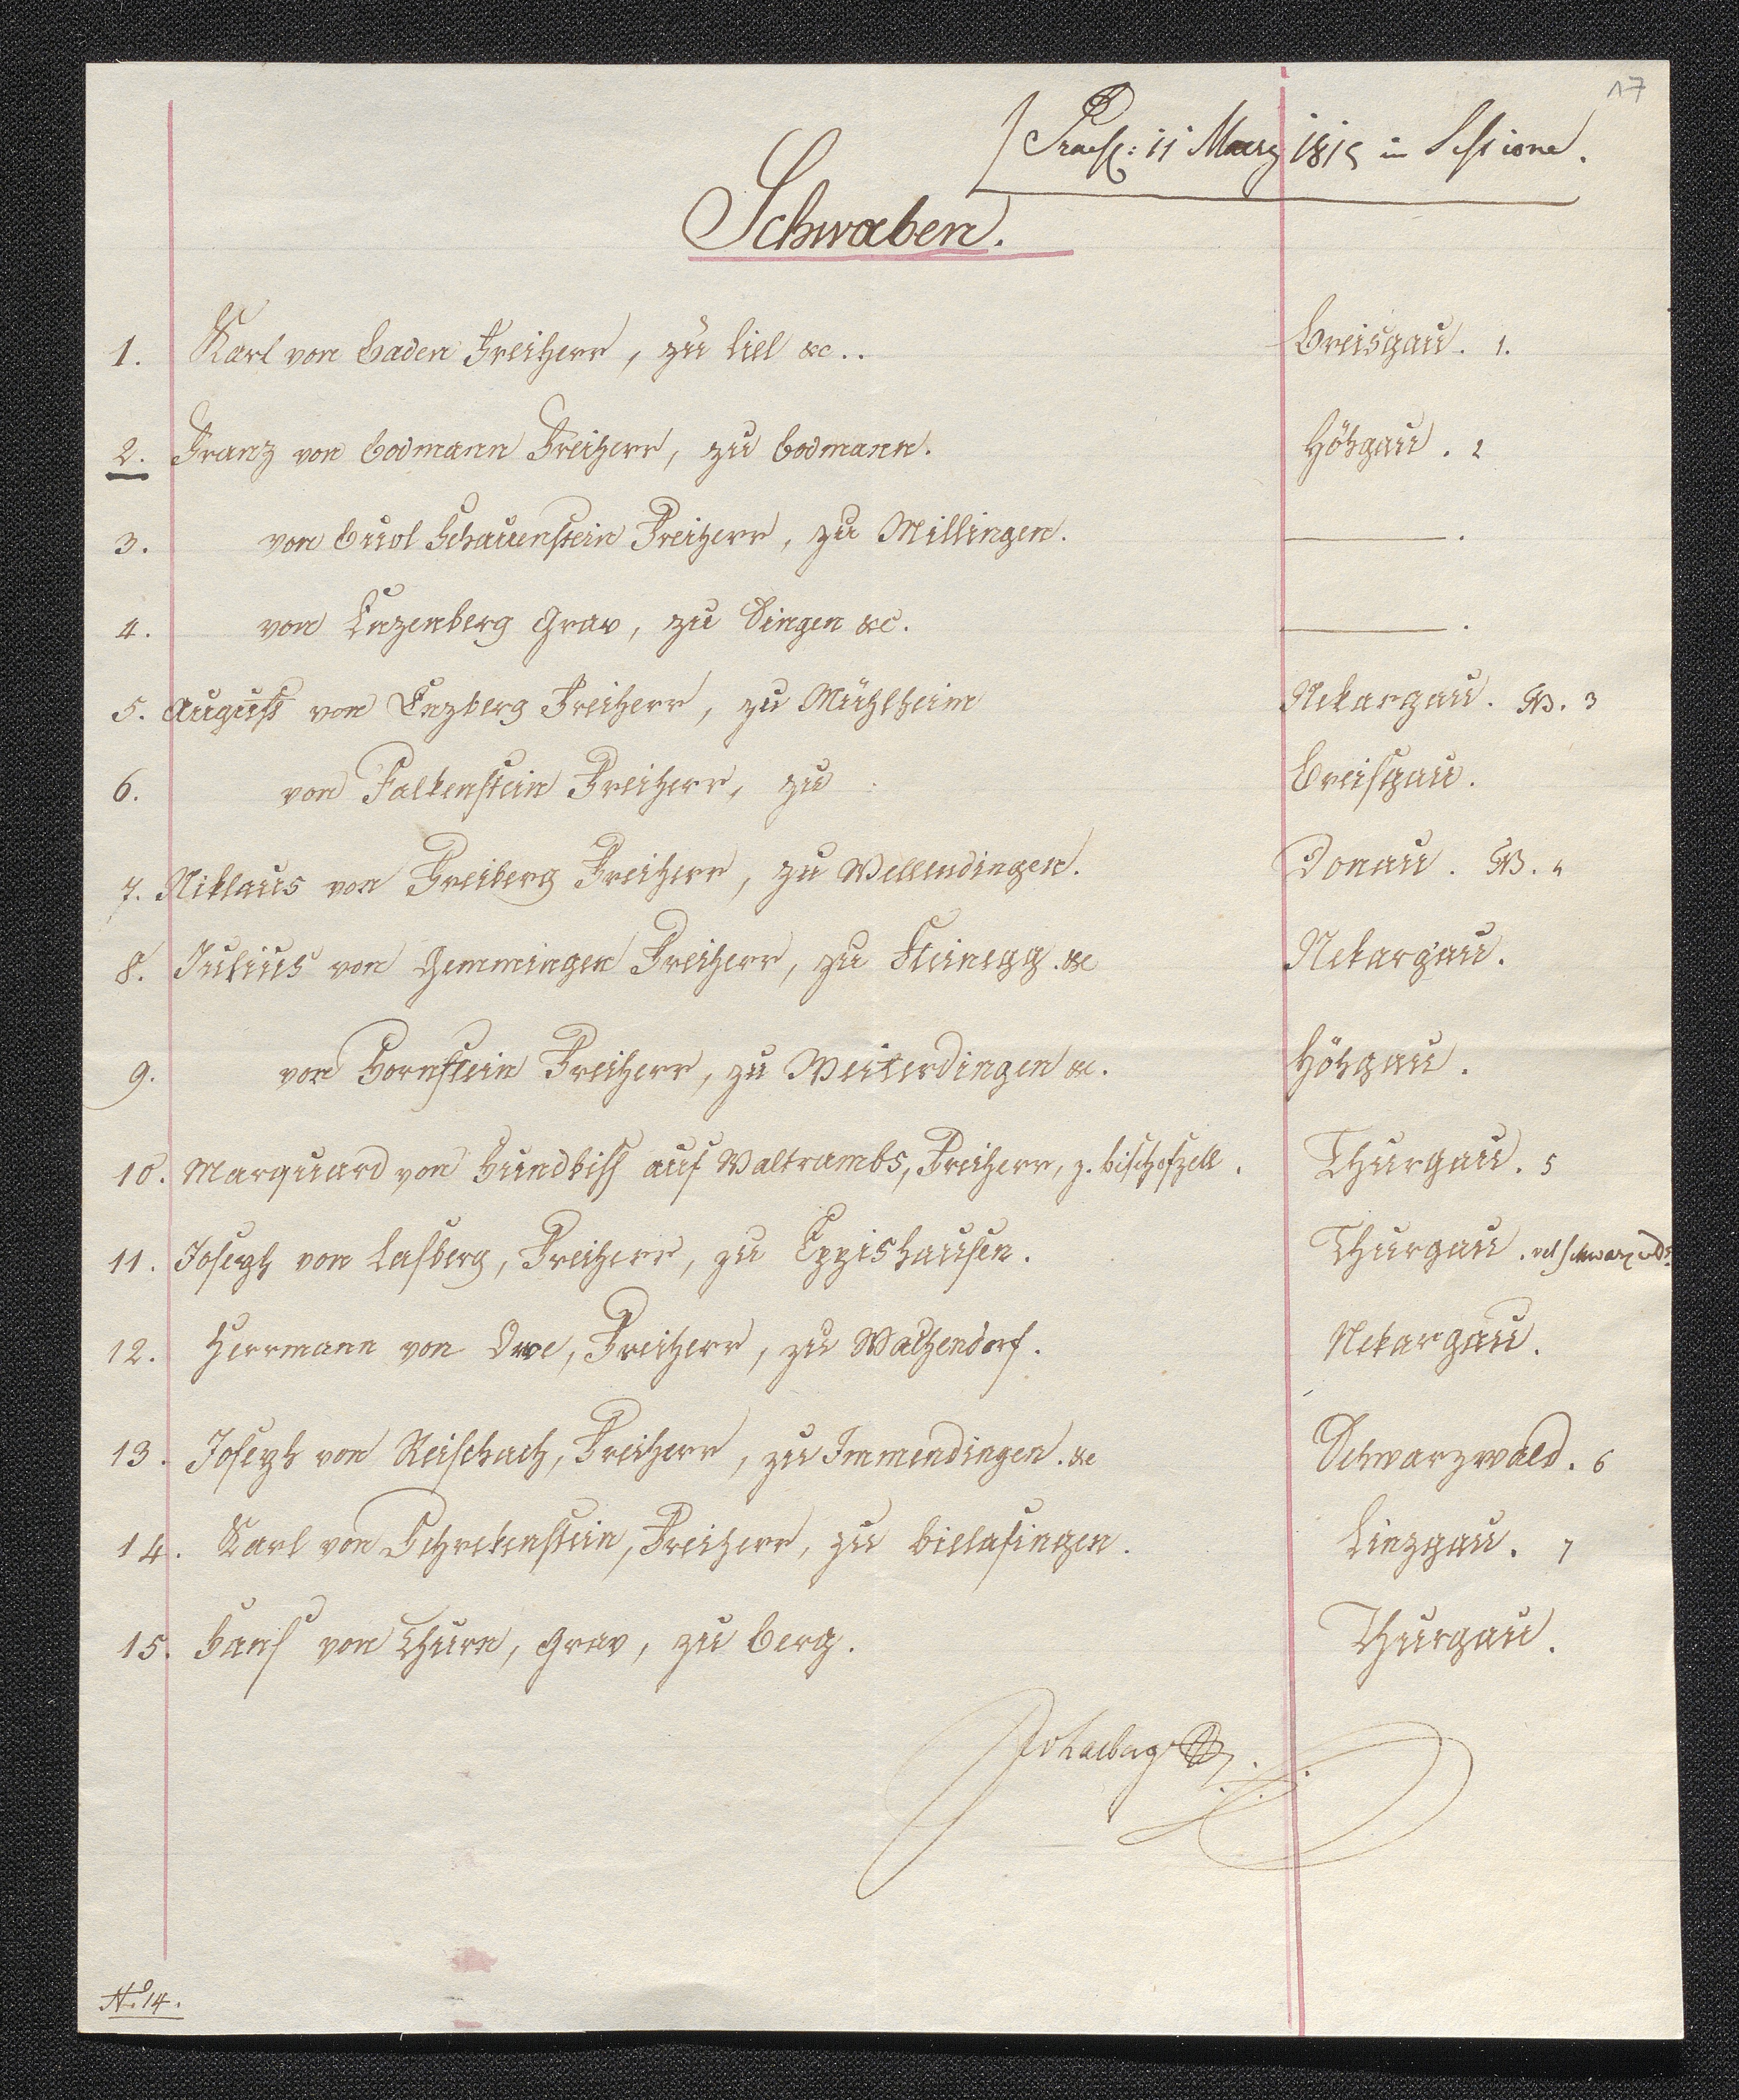 17
Praes: 11 Maerz 1815 in Sessione.
Schwaben.
1. Karl von Baden Freiherr, zu Liel &c.. Breisgau. 1.
2. Franz von Bodmann Freiherr, zu Bodmann. Höhgau. 2
3. von Buol Schauenstein Freiherr, zu Millingen. ———.
4. von Enzenberg Grav, zu Singen &c. ———.
5. August von Enzberg Freiherr, zu Mühlheim Nekargau. 3
6. von Falkenstein Freiherr, zu Breisgau.
7. Niklaus von Freiberg Freiherr, zu Wellendingen. Donau. 4
8. Julius von Gemmingen Freiherr, zu Steinegg. &c Nekargau.
9. von Hornstein Freiherr, zu Weiterdingen &c. Höhgau.
10. Marquard von Hundbiss auf Waltrambs, Freiherr, z. Bischofzell. Thurgau. 5
11. Joseph von Lasberg, Freiherr, zu Eppishausen. Thurgau. vel Schwarzwd.
12. Herrmann von Owe, Freiherr, zu Wachendorf. Nekargau.
13. Joseph von Reischach, Freiherr, zu Immendingen. &c Schwarzwald. 6
14. Karl von Schrekenstein, Freiherr, zu Bielafingen. Linzgau. 7
15. Hans von Thurn, Grav, zu Berg. Thurgau.
No. 14.